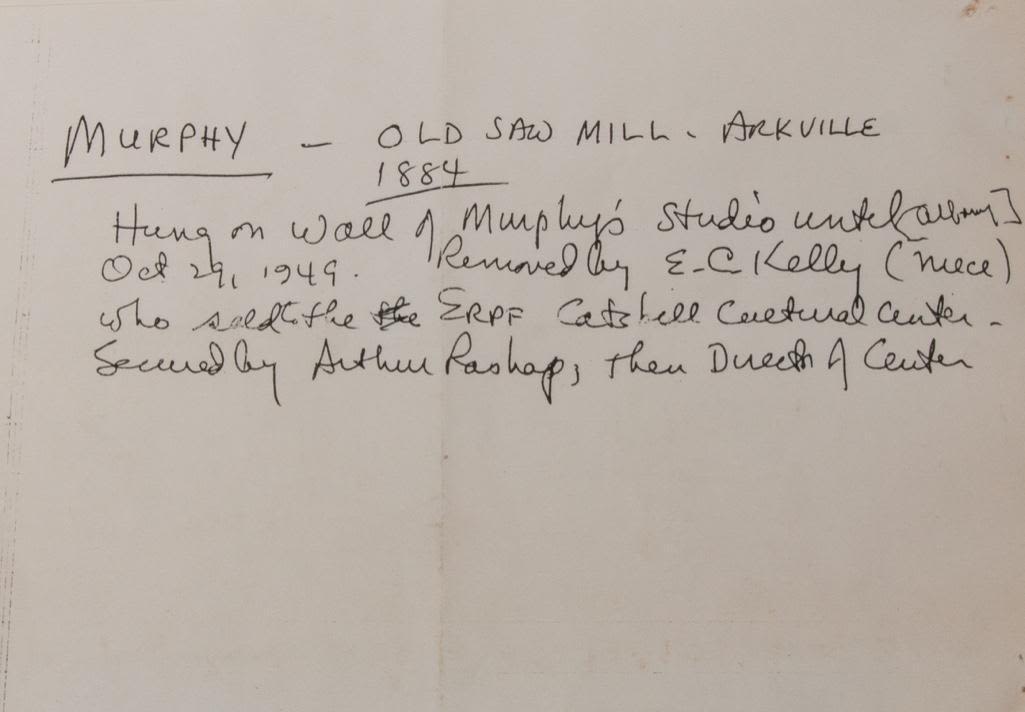 MURPHY — OLD SAW MILL - ARKVILLE
1884
Hung on Wall of Murphy's Studio until
Oct 29, 1949. Removed by E-C Kelly (niece)
who sold to the the ERPF Catskill Cultural Center -
Secured by Arthur Rashap, then Director of Center